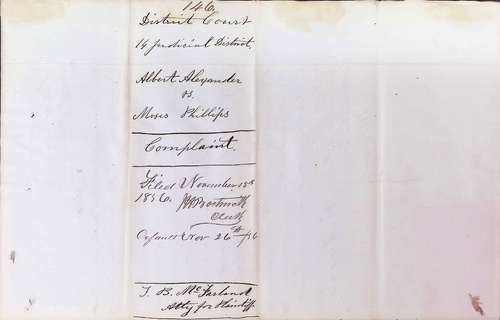 146
District Court
14 Judicial District,
Albert Alexander
vs.
Moses Phillips
Complaint.
Filed November 15th
1856.
Clerk
Default Nov 26th /56
T. B. McFarland
Atty for Plaintiff